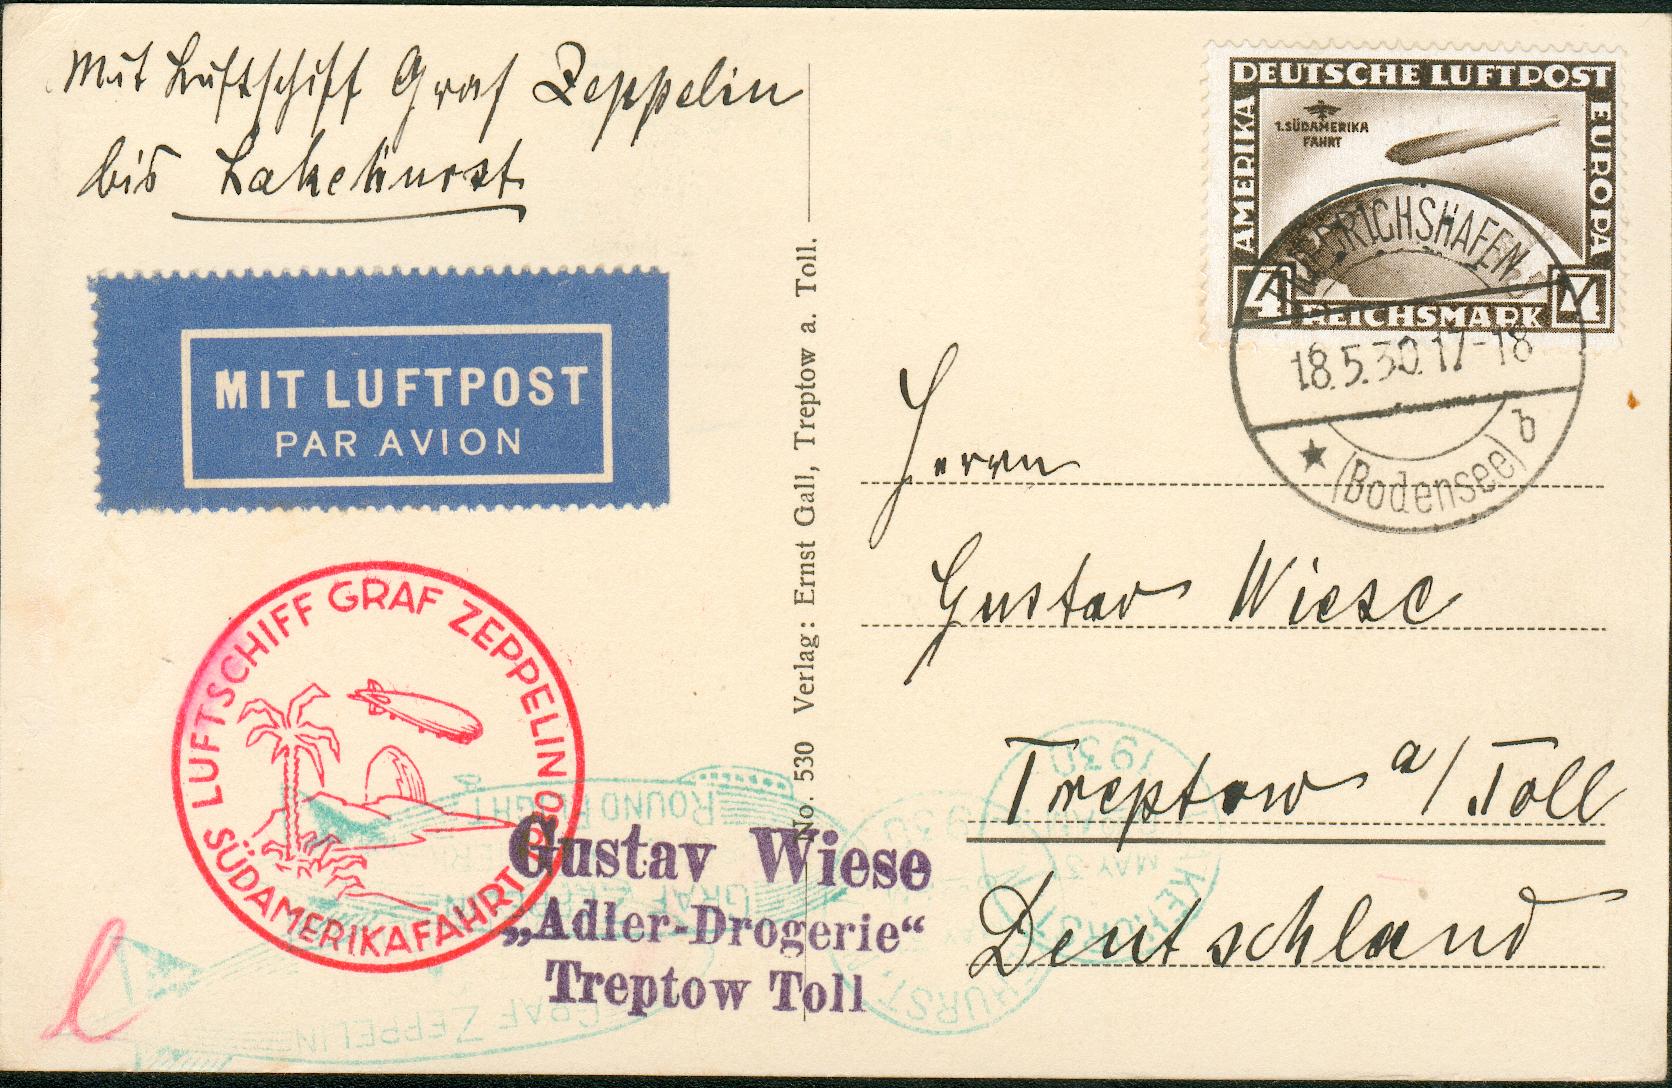 Mit Luftschiff Graf Zeppelin
bis Lakehurst
MIT LUFTPOST
PAR AVION
LUFTSCHIFF GRAF ZEPPELIN 1930
SÜDAMERIKAFAHRT
No. 530 Verlag: Ernst Gall, Treptow a. Toll.
DEUTSCHE LUFTPOST
AMERIKA
EUROPA
1. SÜDAMERIKA
FAHRT
4 REICHSMARK 4
FRIEDRICHSHAFEN
18.5.30.17-18
(Bodensee) b
Herrn
Gustav Wiese
Treptow a/Toll
Deutschland
Gustav Wiese
„Adler-Drogerie“
Treptow Toll
ROUND FLIGHT
GRAF ZEPPELIN
GRAF ZEPPELIN
1930
MAY
1930